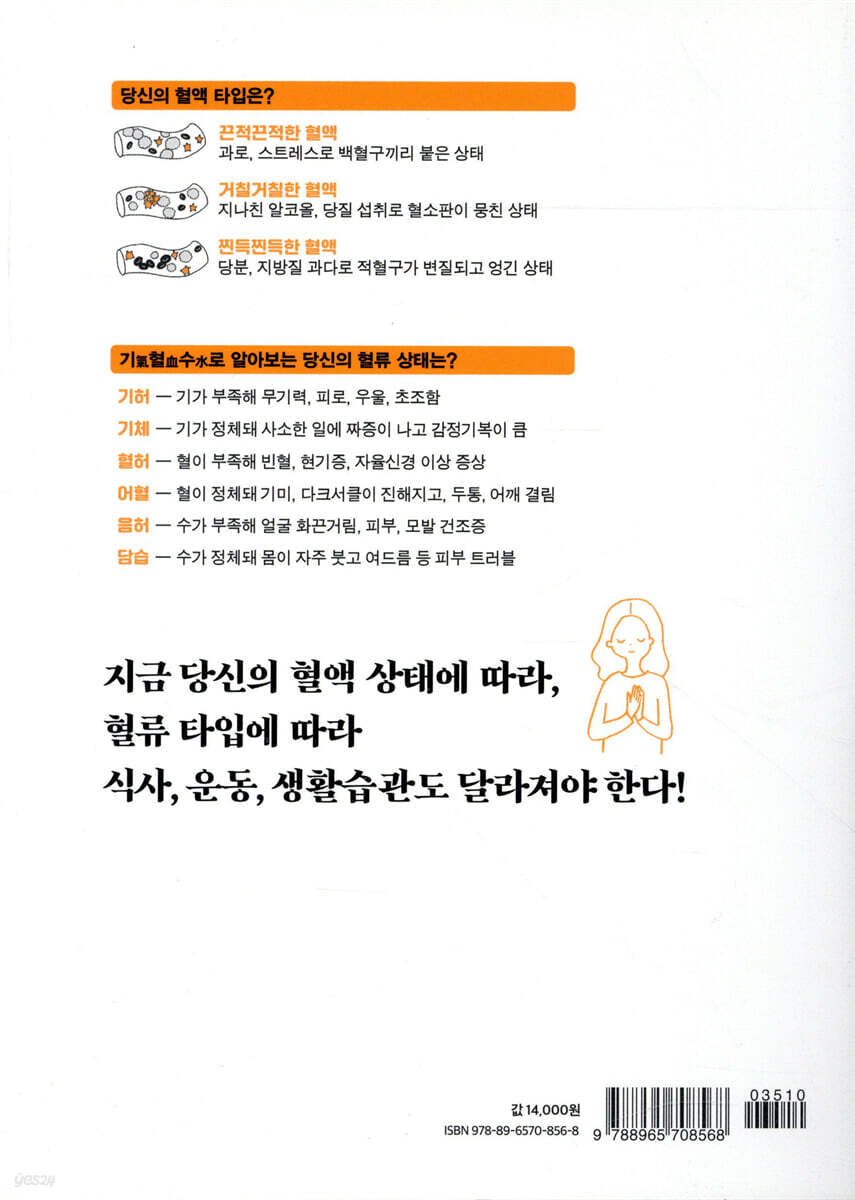 당신의 혈액 타입은?
끈적끈적한 혈액
과로, 스트레스로 백혈구끼리 붙은 상태
거칠거칠한 혈액
지나친 알코올, 당질 섭취로 혈소판이 뭉친 상태
찐득찐득한 혈액
당분, 지방질 과다로 적혈구가 변질되고 엉긴 상태
기氣혈血수水로 알아보는 당신의 혈류 상태는?
기허 — 기가 부족해 무기력, 피로, 우울, 초조함
기체 — 기가 정체돼 사소한 일에 짜증이 나고 감정기복이 큼
혈허 — 혈이 부족해 빈혈, 현기증, 자율신경 이상 증상
어혈 — 혈이 정체돼 기미, 다크서클이 진해지고, 두통, 어깨 결림
음허 — 수가 부족해 얼굴 화끈거림, 피부, 모발 건조증
담습 — 수가 정체돼 몸이 자주 붓고 여드름 등 피부 트러블
지금 당신의 혈액 상태에 따라,
혈류 타입에 따라
식사, 운동, 생활습관도 달라져야 한다!
값 14,000원
ISBN 978-89-6570-856-8
9 788965 708568
03510
yes24